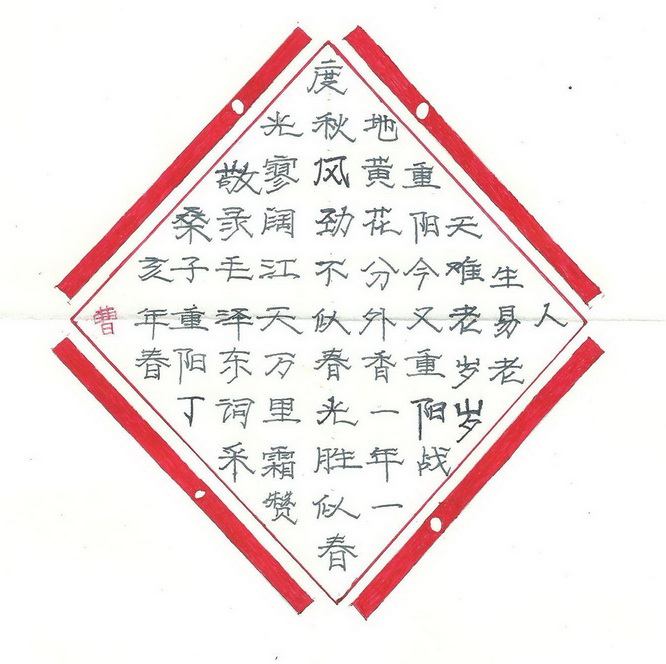 人
生易老
天难老岁岁
重阳今又重阳战
地黄花分外香一年一
度秋风劲不似春光胜似春
光寥阔江天万里霜赞
敬录毛泽东词采
桑子重阳丁
亥年春
曹